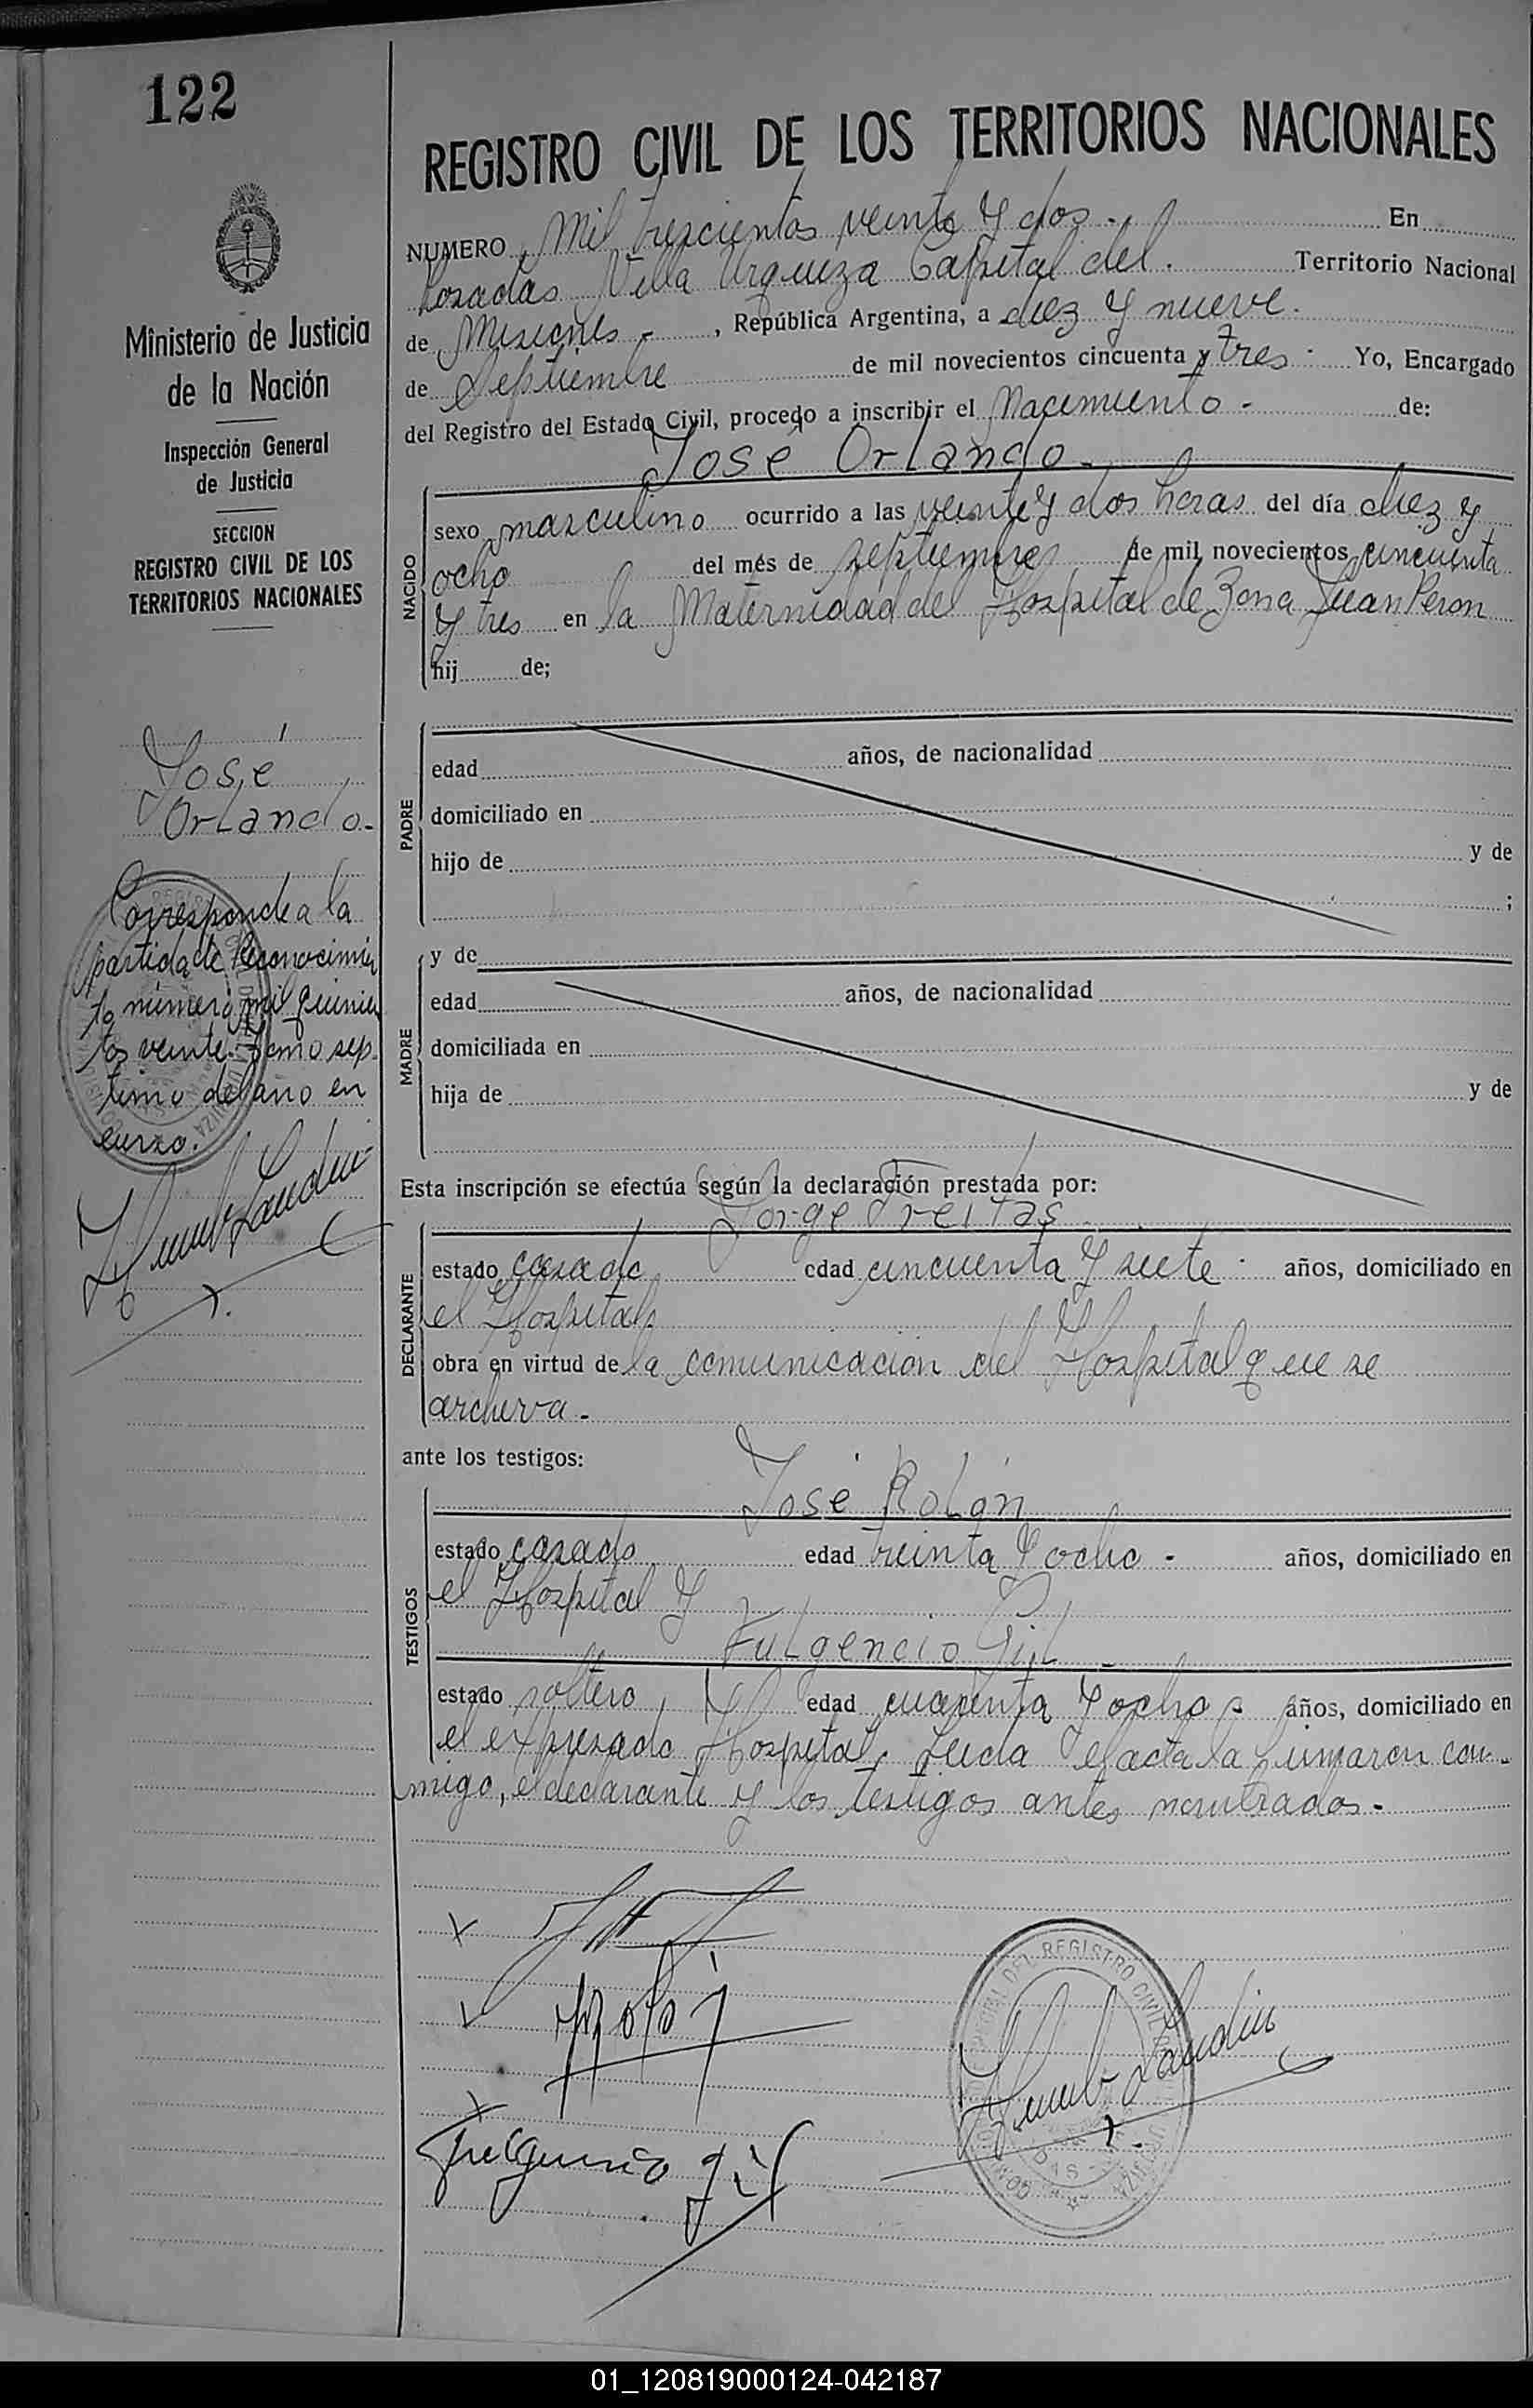 122
REGISTRO CIVIL DE LOS TERRITORIOS NACIONALES
NUMERO Mil trescientos veinte y dos.- En
Posadas Villa Urquiza Capital del. Territorio Nacional
de Misiones - , República Argentina, a diez y nueve.
de Septiembre de mil novecientos cincuenta y tres - Yo, Encargado
del Registro del Estado Civil, procedo a inscribir el Nacimiento - de:
José Orlando.-
NACIDO
sexo masculino ocurrido a las veinte y dos horas del día diez y
ocho del més de septiembre de mil novecientos cincuenta
y tres en la Maternidad del Hospital de Zona Juan Peron
hij de;
PADRE
edad años, de nacionalidad
domiciliado en
hijo de y de
;
MADRE
y de
edad años, de nacionalidad
domiciliada en
hija de y de
Esta inscripción se efectúa según la declaración prestada por:
Jorge Freitas
DECLARANTE
estado casado edad cincuenta y siete - años, domiciliado en
el Hospital.
obra en virtud de la comunicación del Hospital que se
archiva.-
ante los testigos:
José Rolón
TESTIGOS
estado casado edad treinta y ocho - años, domiciliado en
el Hospital y
Fulgencio Gil -
estado soltero, edad cuarenta y ocho - años, domiciliado en
el expresado Hospital. Leida el acta la firmaron con-
migo, el declarante y los testigos antes nombrados.-
Fulgencio gil
Ministerio de Justicia
de la Nación
Inspección General
de Justicia
SECCION
REGISTRO CIVIL DE LOS
TERRITORIOS NACIONALES
José
Orlando.
Corresponde a la
partida de Reconocimien
to número mil quinien
tos veinte. Tomo sép
timo del año en
curso.
01_120819000124-042187